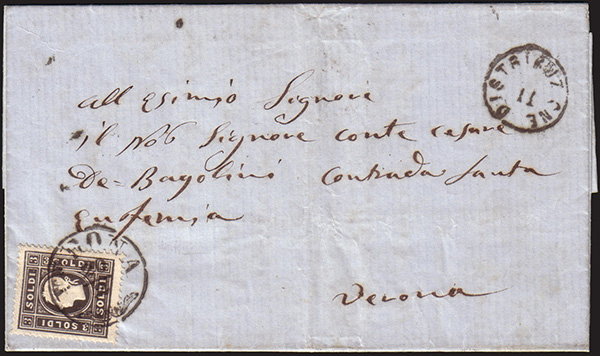 DISTRIBUZIONE
11
All Esimio Signore
il Nob Signore conte Cesare
De-Bagolino Contrada Santa
Eufemia
Verona
VERONA
3 SOLDI 3
SOLDI
SOLDI